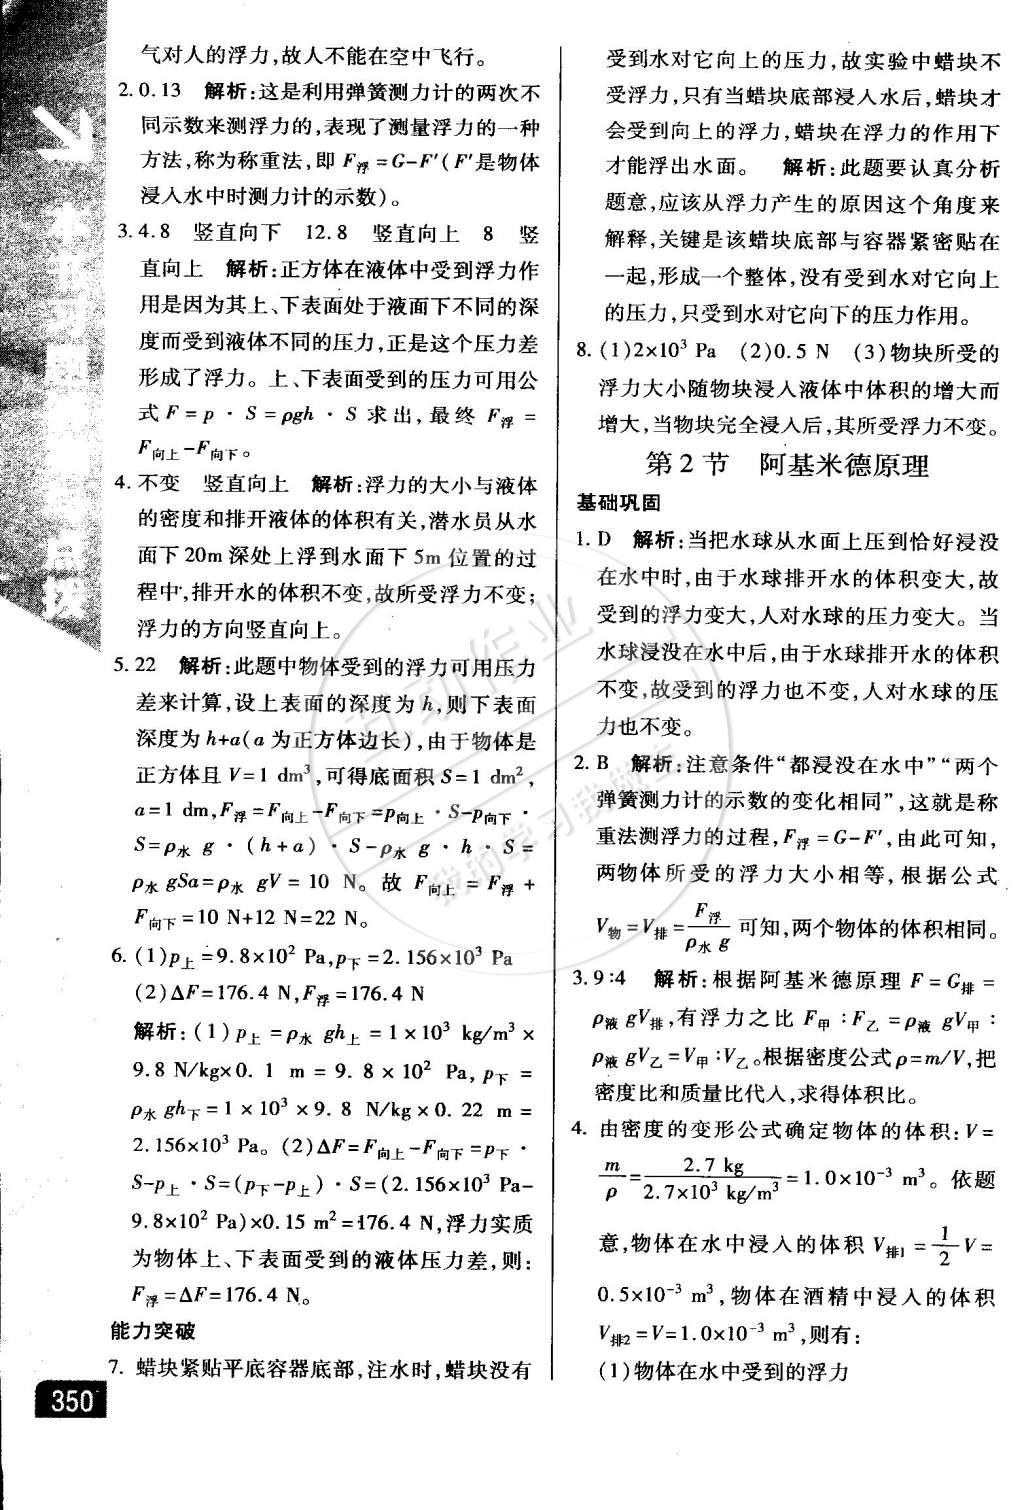 气对人的浮力,故人不能在空中飞行。
2.0.13 解析:这是利用弹簧测力计的两次不
同示数来测浮力的,表现了测量浮力的一种
方法,称为称重法,即 F浮=G-F′(F′是物体
浸入水中时测力计的示数)。
3.4.8 竖直向下 12.8 竖直向上 8 竖
直向上 解析:正方体在液体中受到浮力作
用是因为其上、下表面处于液面下不同的深
度而受到液体不同的压力,正是这个压力差
形成了浮力。上、下表面受到的压力可用公
式 F=p·S=ρgh·S 求出,最终 F浮=
F向上-F向下。
4.不变 竖直向上 解析:浮力的大小与液体
的密度和排开液体的体积有关,潜水员从水
面下20m深处上浮到水面下5m位置的过
程中,排开水的体积不变,故所受浮力不变;
浮力的方向竖直向上。
5.22 解析:此题中物体受到的浮力可用压力
差来计算,设上表面的深度为h,则下表面
深度为h+a(a为正方体边长),由于物体是
正方体且V=1 dm³,可得底面积S=1 dm²,
a=1 dm,F浮=F向上-F向下=p向上·S-p向下·
S=ρ水 g·(h+a)·S-ρ水 g·h·S=
ρ水 gSa=ρ水 gV=10 N。故 F向上=F浮+
F向下=10 N+12 N=22 N。
6.(1)p上=9.8×10² Pa,p下=2.156×10³ Pa
(2)ΔF=176.4 N,F浮=176.4 N
解析:(1)p上=ρ水 gh上=1×10³ kg/m³×
9.8 N/kg×0.1 m=9.8×10² Pa,p下=
ρ水 gh下=1×10³×9.8 N/kg×0.22 m=
2.156×10³ Pa。(2)ΔF=F向上-F向下=p下·
S-p上·S=(p下-p上)·S=(2.156×10³ Pa-
9.8×10² Pa)×0.15 m²=176.4 N,浮力实质
为物体上、下表面受到的液体压力差,则:
F浮=ΔF=176.4 N。
能力突破
7.蜡块紧贴平底容器底部,注水时,蜡块没有
350
受到水对它向上的压力,故实验中蜡块不
受浮力,只有当蜡块底部浸入水后,蜡块才
会受到向上的浮力,蜡块在浮力的作用下
才能浮出水面。 解析:此题要认真分析
题意,应该从浮力产生的原因这个角度来
解释,关键是该蜡块底部与容器紧密贴在
一起,形成一个整体,没有受到水对它向上
的压力,只受到水对它向下的压力作用。
8.(1)2×10³ Pa (2)0.5 N (3)物块所受的
浮力大小随物块浸入液体中体积的增大而
增大,当物块完全浸入后,其所受浮力不变。
第2节 阿基米德原理
基础巩固
1.D 解析:当把水球从水面上压到恰好浸没
在水中时,由于水球排开水的体积变大,故
受到的浮力变大,人对水球的压力变大。当
水球浸没在水中后,由于水球排开水的体积
不变,故受到的浮力也不变,人对水球的压
力也不变。
2.B 解析:注意条件“都浸没在水中”“两个
弹簧测力计的示数的变化相同”,这就是称
重法测浮力的过程,F浮=G-F′,由此可知,
两物体所受的浮力大小相等,根据公式
V物=V排=F浮/ρ水 g 可知,两个物体的体积相同。
3.9∶4 解析:根据阿基米德原理 F=G排=
ρ液 gV排,有浮力之比 F甲∶F乙=ρ液 gV甲∶
ρ液 gV乙=V甲∶V乙。根据密度公式ρ=m/V,把
密度比和质量比代人,求得体积比。
4.由密度的变形公式确定物体的体积:V=
m/ρ=2.7 kg/2.7×10³ kg/m³=1.0×10⁻³ m³。依题
意,物体在水中浸入的体积 V排1=1/2 V=
0.5×10⁻³ m³,物体在酒精中浸入的体积
V排2=V=1.0×10⁻³ m³,则有:
(1)物体在水中受到的浮力